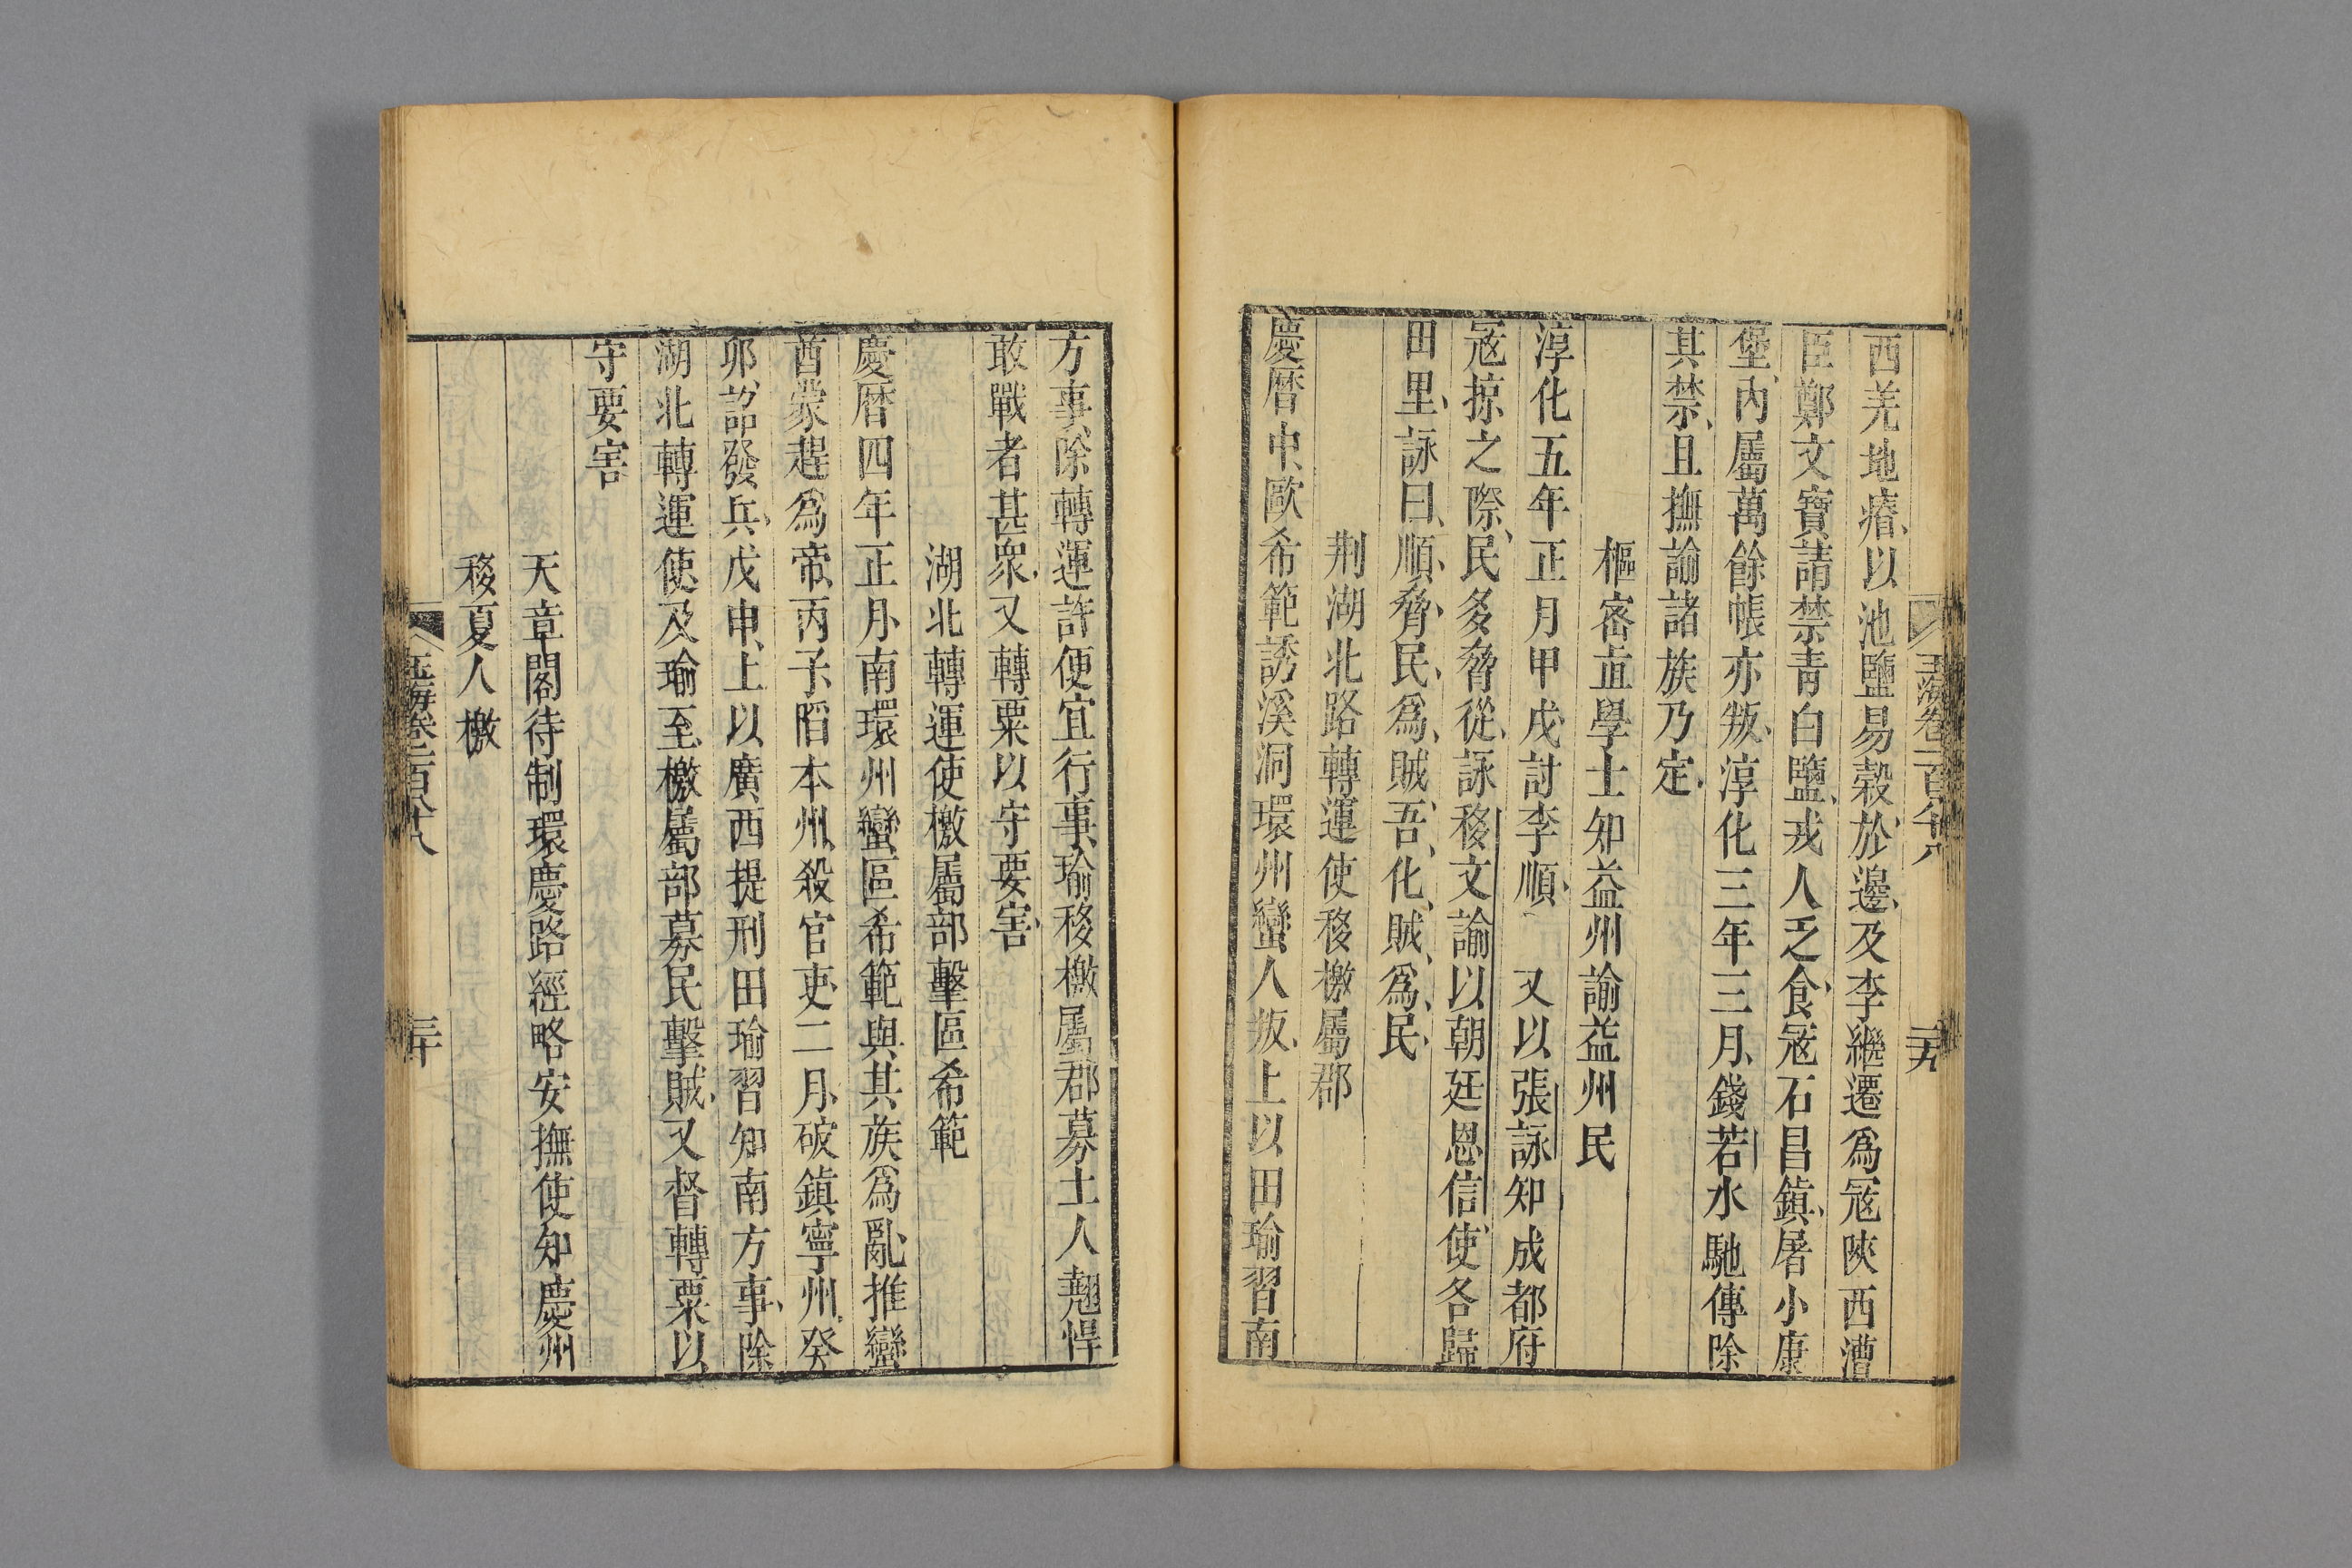 玉海卷二百八 三九
西羌地瘠以池鹽易穀於邊及李繼遷爲寇陝西漕
臣鄭文寶請禁靑白鹽戎人乏食寇石昌鎮屠小康
堡內屬萬餘帳亦叛淳化三年三月錢若水馳傳除
其禁且撫諭諸族乃定
樞密直學士知益州諭益州民
淳化五年正月甲戌討李順 又以張詠知成都府
寇掠之際民多脅從詠移文諭以朝廷恩信使各歸
田里詠曰順脅民爲賊吾化賊爲民
荆湖北路轉運使移檄屬郡
慶曆中歐希範誘溪洞環州蠻人叛上以田瑜習南
方事除轉運許便宜行事瑜移檄屬郡募土人趫悍
敢戰者甚衆又轉粟以守要害
湖北轉運使檄屬部擊區希範
慶曆四年正月南環州蠻區希範與其族爲亂推蠻
酋蒙趕爲帝丙子陷本州殺官吏二月破鎮寧州癸
卯詔發兵戊申上以廣西提刑田瑜習知南方事除
湖北轉運使及瑜至檄屬部募民擊賊又督轉粟以
守要害
天章閣待制環慶路經略安撫使知慶州
移夏人檄
玉海卷二百八 三十